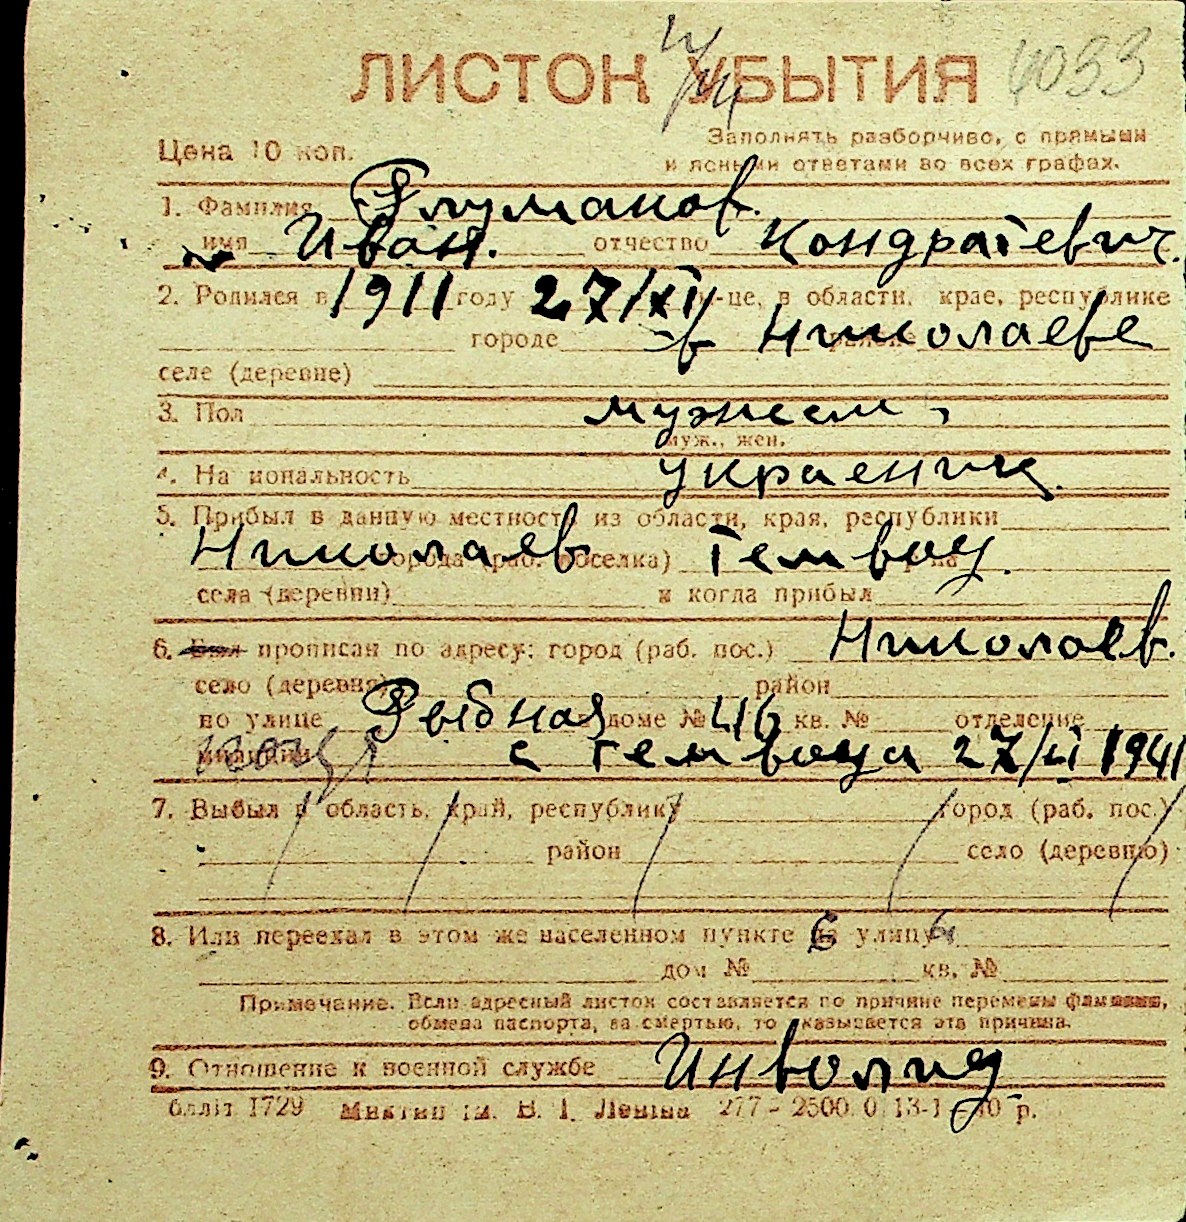 ЛИСТОК УБЫТИЯ 4033
Цена 10 коп.
Заполнять разборчиво, с прямыми
и ясными ответами во всех графах.
1. Фамилия Глуманов.
имя Иван. отчество Кондратевич.
2. Родился в 1911 году 27/XI м-це, в области, крае, республике
городе в Николаеве
селе (деревне)
3. Пол мужеси,
муж., жен.
4. Национальность украеник.
5. Прибыл в данную местность из области, края, республики
Николаев города (раб. поселка)
села (деревни) и когда прибыл
6. Был прописан по адресу: город (раб. пос.) Николаев.
село (деревня) район
по улице Рыбная доме № 46 кв. № отделение
милиции с 27/II 1941
7. Выбыл в область, край, республику город (раб. пос.)
район село (деревню)
8. Или переехал в этом же населенном пункте на улицу
дом № кв. №
Примечание. Если адресный листок составляется по причине перемены фамилии,
обмена паспорта, за смертью, то указывается эта причина.
9. Отношение к военной службе Инволид
бллiт 1729 В. І. Леніна 277 - 2500 0 13-1 - 40 р.